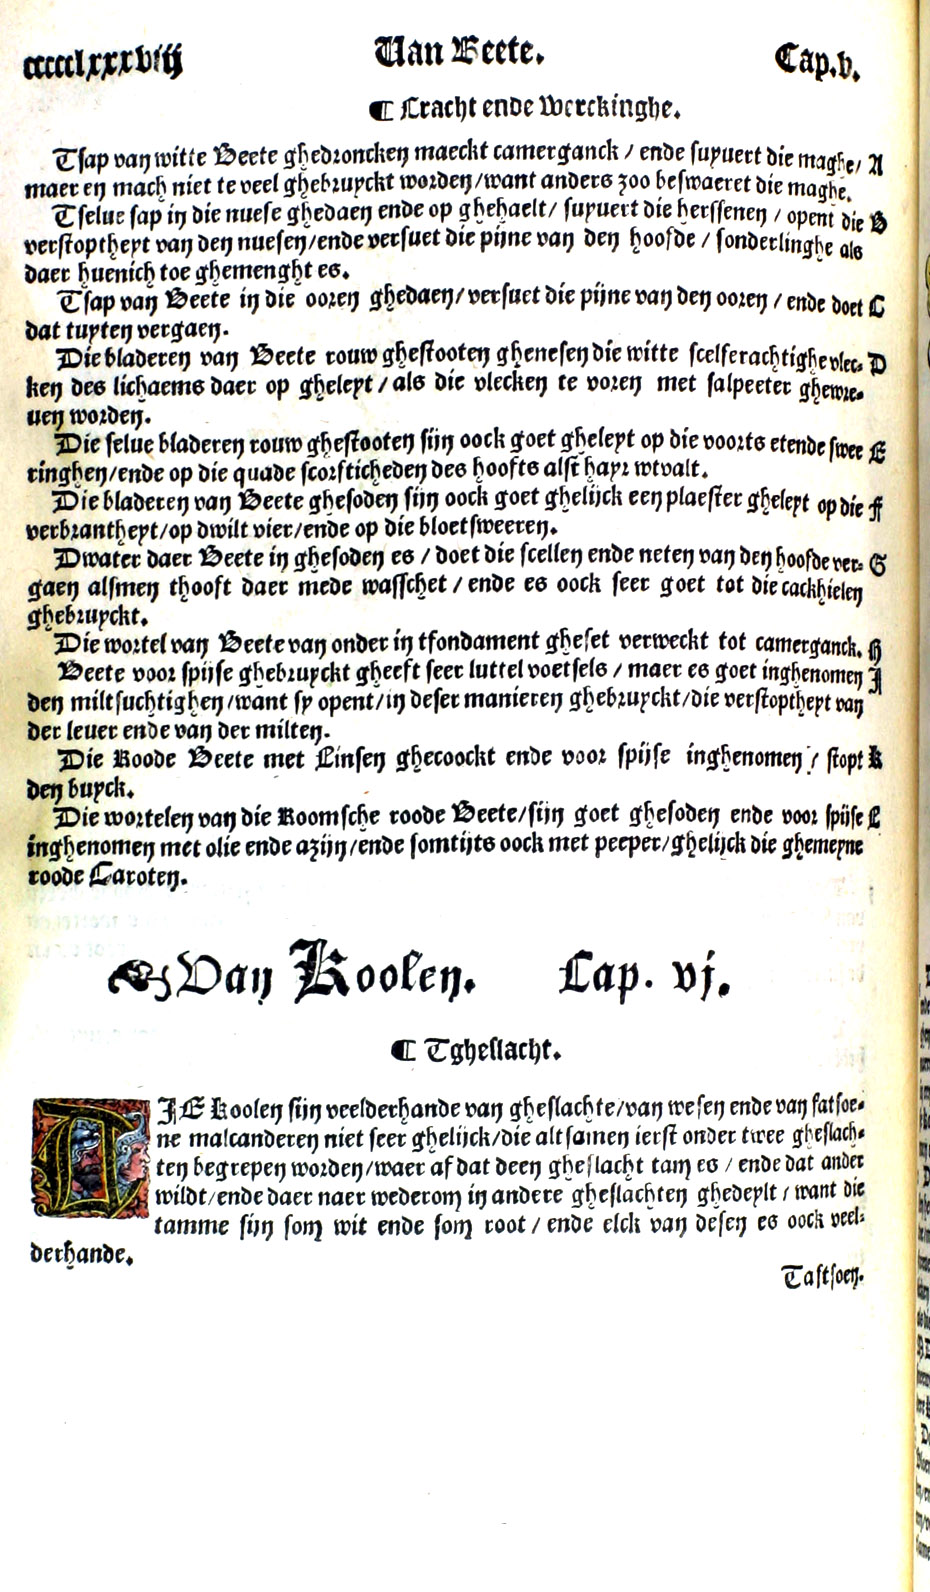 ccccclxxxviij Van Beete. Cap.v.
¶ Cracht ende Werckinghe.
Tsap van witte Beete ghedroncken maeckt camerganck / ende suyuert die maghe/ A
maer en mach niet te veel ghebruyckt worden/want anders zoo beswaeret die maghe.
Tselue sap in die nuese ghedaen ende op ghehaelt/ suyuert die herssenen / opent die B
verstoptheyt van den nuesen/ende versuet die pijne van den hoofde / sonderlinghe als
daer huenich toe ghemenght es.
Tsap van Beete in die ooren ghedaen/versuet die pijne van den ooren / ende doet C
dat tuyten vergaen.
Die bladeren van Beete rouw ghestooten ghenesen die witte scelferachtighe vlec= D
ken des lichaems daer op gheleyt / als die vlecken te voren met salpeeter ghewre=
uen worden.
Die selue bladeren rouw ghestooten sijn oock goet gheleyt op die voorts etende swee E
ringhen/ende op die quade scorfticheden des hoofts alst hayr wtvalt.
Die bladeren van Beete ghesoden sijn oock goet ghelijck een plaester gheleyt op die F
verbrantheyt/op dwilt vier/ende op die bloetsweeren.
Dwater daer Beete in ghesoden es / doet die scellen ende neten van den hoofde ver= G
gaen alsmen thooft daer mede wasschet / ende es oock seer goet tot die cackhielen
ghebruyckt.
Die wortel van Beete van onder in tfondament gheset verweckt tot camerganck. H
Beete voor spijse ghebruyckt gheeft seer luttel voetsels / maer es goet inghenomen I
den miltsuchtighen/want sy opent/in deser manieren ghebruyckt/die verstoptheyt van
der leuer ende van der milten.
Die Roode Beete met Linsen ghecoockt ende voor spijse inghenomen / stopt K
den buyck.
Die wortelen van die Roomsche roode Beete/sijn goet ghesoden ende voor spijse L
inghenomen met olie ende azijn/ende somtijts oock met peeper/ghelijck die ghemeyne
roode Caroten.
Van Koolen. Cap. vj.
¶ Tgheslacht.
DIE Koolen sijn veelderhande van gheslachte/van wesen ende van fatsoe=
ne malcanderen niet seer ghelijck/die altsamen ierst onder twee gheslach=
ten begrepen worden/waer af dat deen gheslacht tam es / ende dat ander
wildt/ende daer naer wederom in andere gheslachten ghedeylt / want die
tamme sijn som wit ende som root / ende elck van desen es oock veel=
derhande.
Tfatsoen.